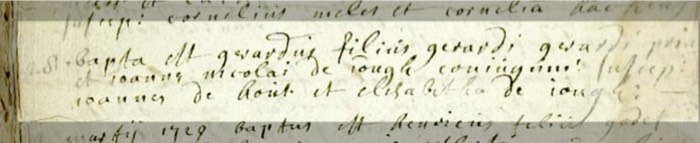 suscep: cornelius meles et cornelia
28 bapta est gerardus filius gerardi gerardi
et ioanna nicolai de iongh coniugum: suscep:
ioannes de bont et elisabetha de iongh:
martij 1729 baptus est henricus filius godef